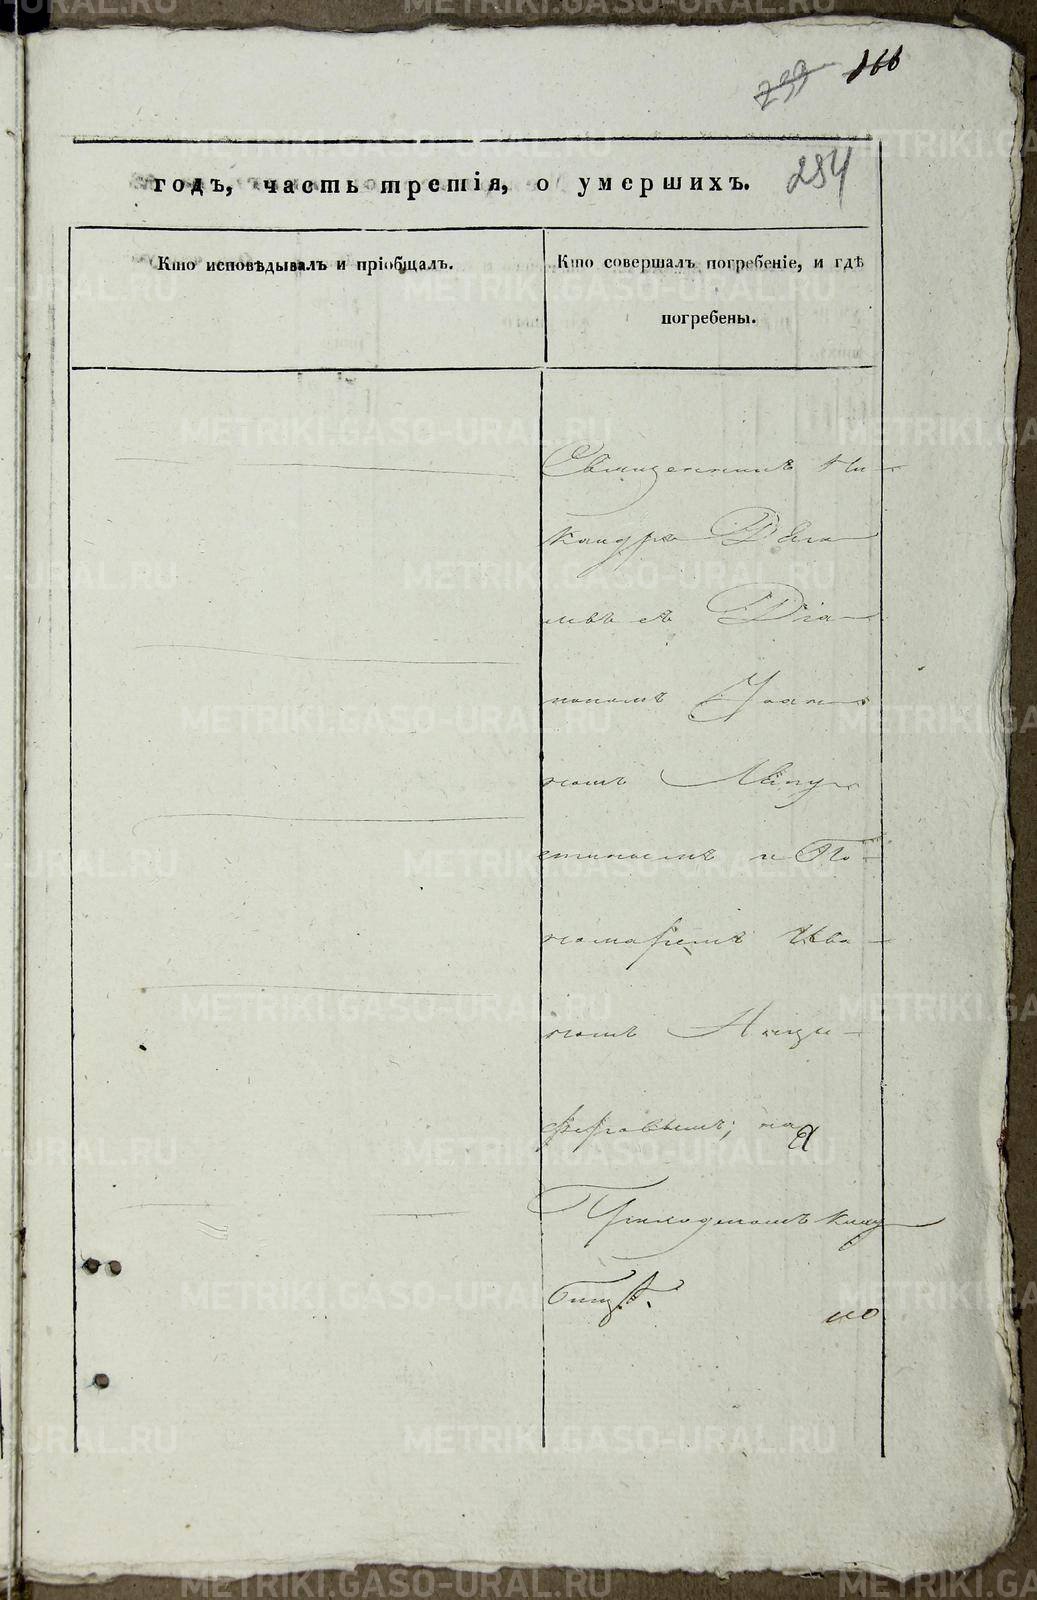 739 166
годъ, часть третія, о умершихъ. 284
Кто исповѣдывалъ и пріобщалъ.
Кто совершалъ погребеніе, и гдѣ
погребены.
Священникъ Ни-
кандръ
съ Діа-
кономъ Іоан-
номъ
и По-
номаремъ Ива-
номъ Анци-
феровымъ; на
Приходскомъ клад
бищѣ.
METRIKI.GASO-URAL.RU